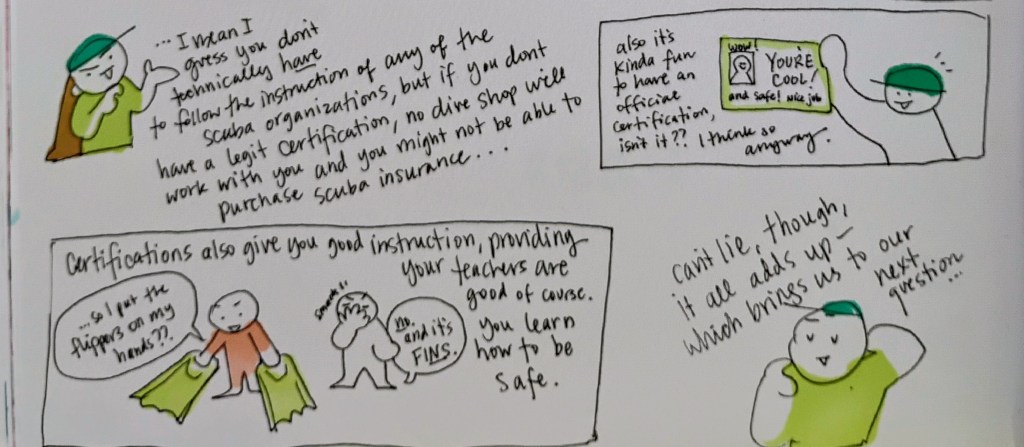 ...I mean I
guess you don't
technically have
to follow the instruction of any of the
scuba organizations, but if you dont
have a legit certification, no dive shop will
work with you and you might not be able to
purchase scuba insurance...
also it's
kinda fun
to have an
official
certification,
isn't it?? I think so
anyway.
wow!
YOU'RE
COOL!
and safe! nice job
Certifications also give you good instruction, providing
your teachers are
good of course.
you learn
how to be
safe.
...so I put the
flippers on my
hands??
no,
and it's
FINS.
can't lie, though,
it all adds up—
which brings us to our
next
question...